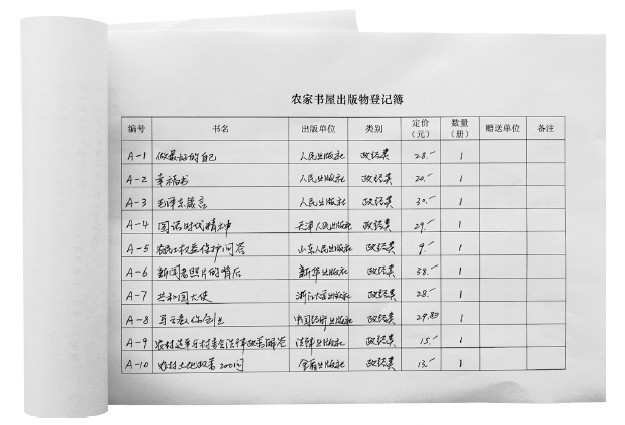 农家书屋出版物登记簿
编号 书名 出版单位 类别 定价（元） 数量（册） 赠送单位 备注
A-1 做最好的自己 人民出版社 政经类 28.- 1
A-2 幸福书 人民出版社 政经类 20.- 1
A-3 毛泽东箴言 人民出版社 政经类 30.- 1
A-4 图话时代精神 天津人民出版社 政经类 29.- 1
A-5 农民工权益保护问答 山东人民出版社 政经类 9.- 1
A-6 新闻老照片的背后 新华出版社 政经类 38.- 1
A-7 共和国大使 浙江大学出版社 政经类 28.- 1
A-8 中国经济出版社 政经类 29.80 1
A-9 农村选举与村委会法律政策解答 法律出版社 政经类 15.- 1
A-10 农村土地政策200问 金盾出版社 政经类 13.- 1